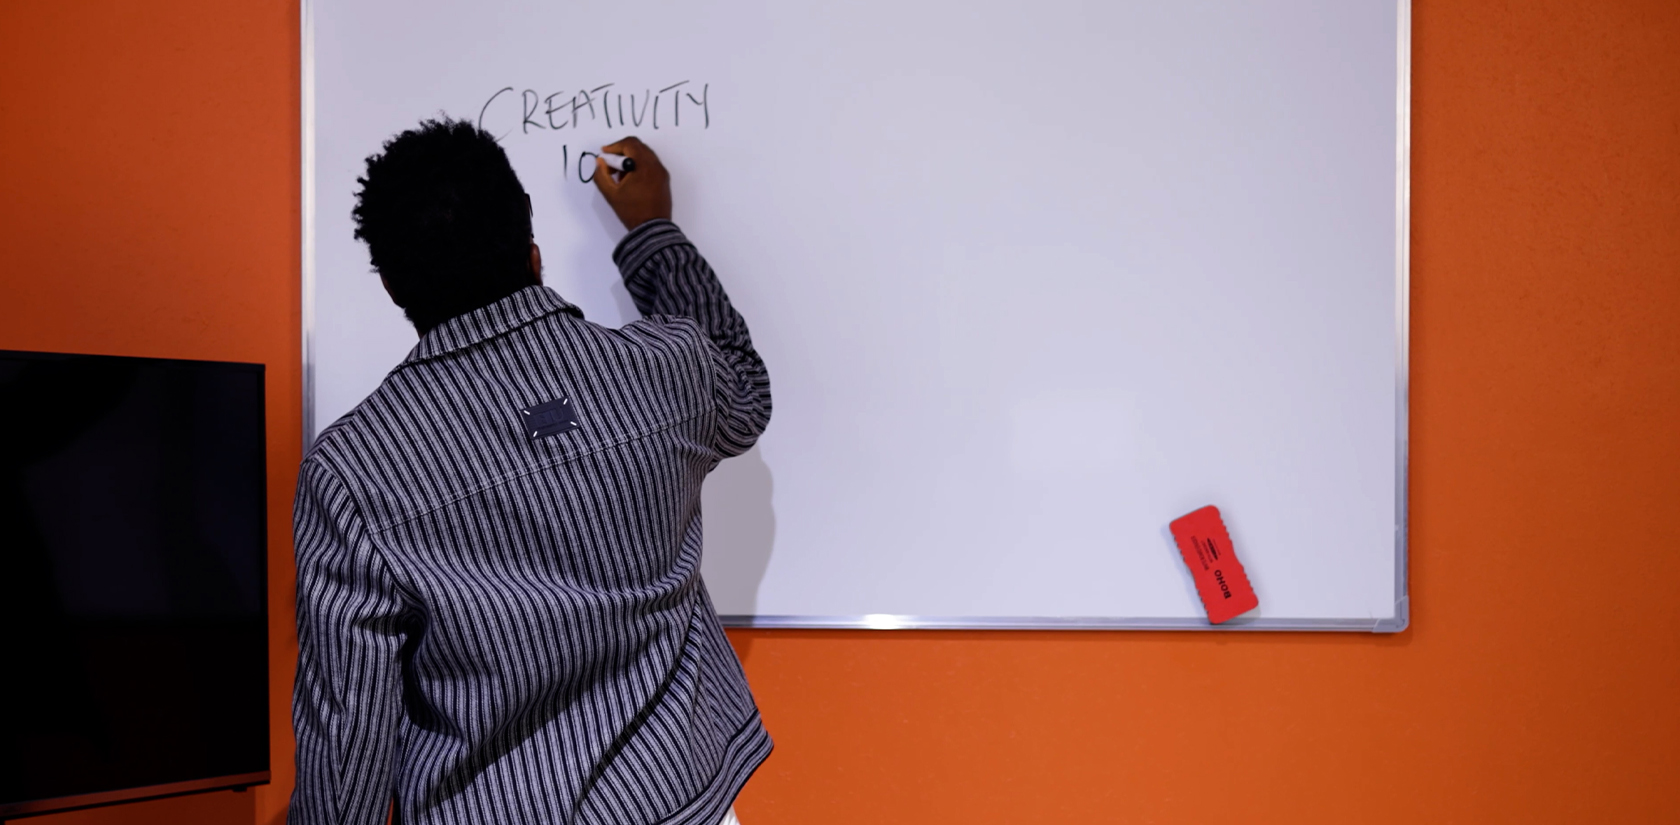 CREATIVITY
10
BOHO